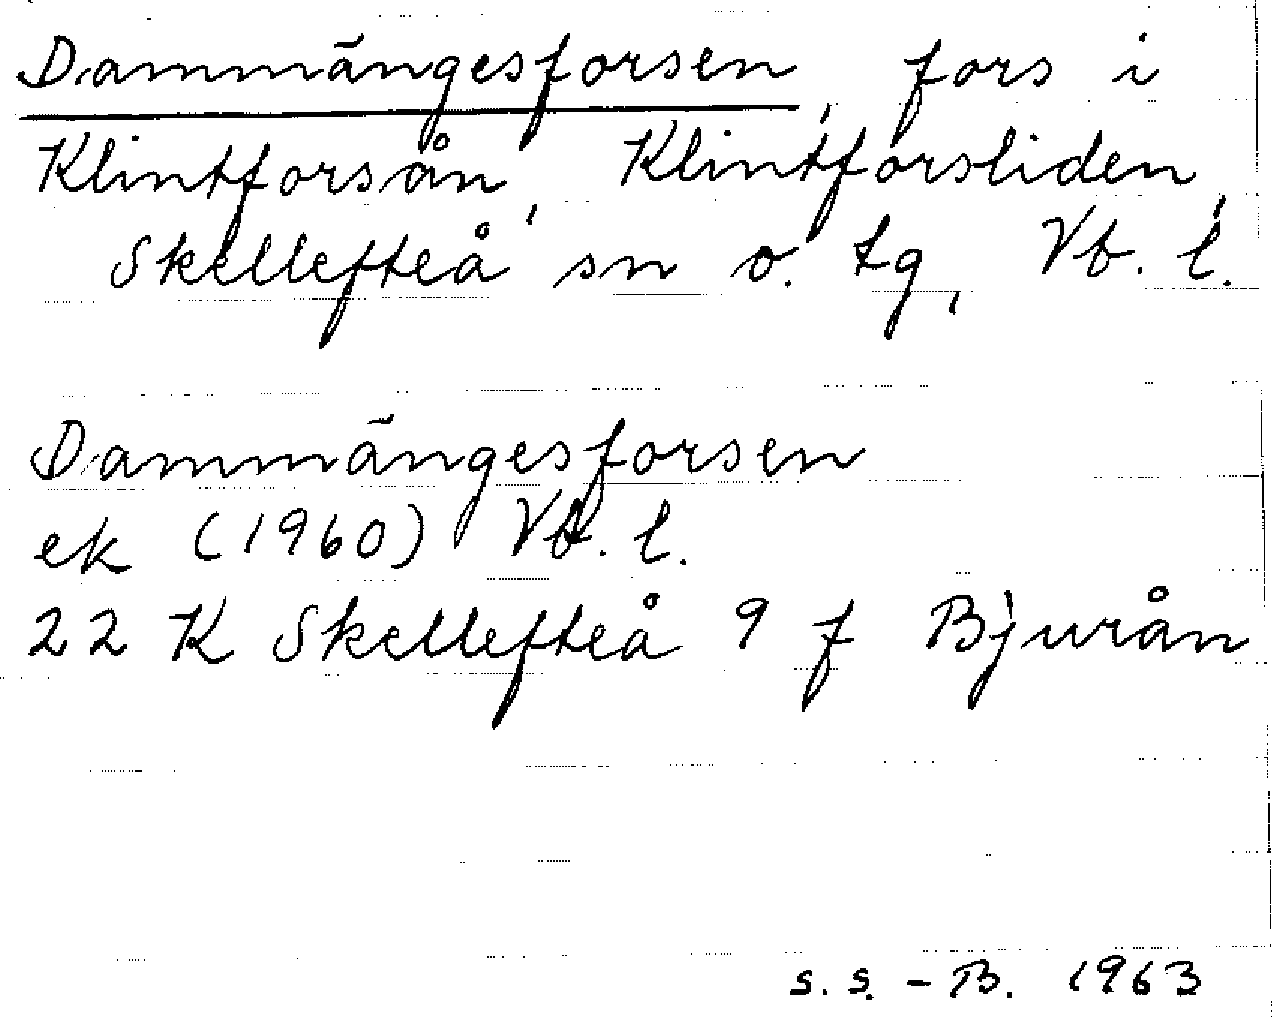 Dammängesforsen, fors i
Klintforsån, Klintforsliden,
Skellefteå sn o. tg, Vb. l.
Dammängesforsen
ek (1960) Vb. l.
22 K Skellefteå 9 f Bjurån
s.s. - B. 1963